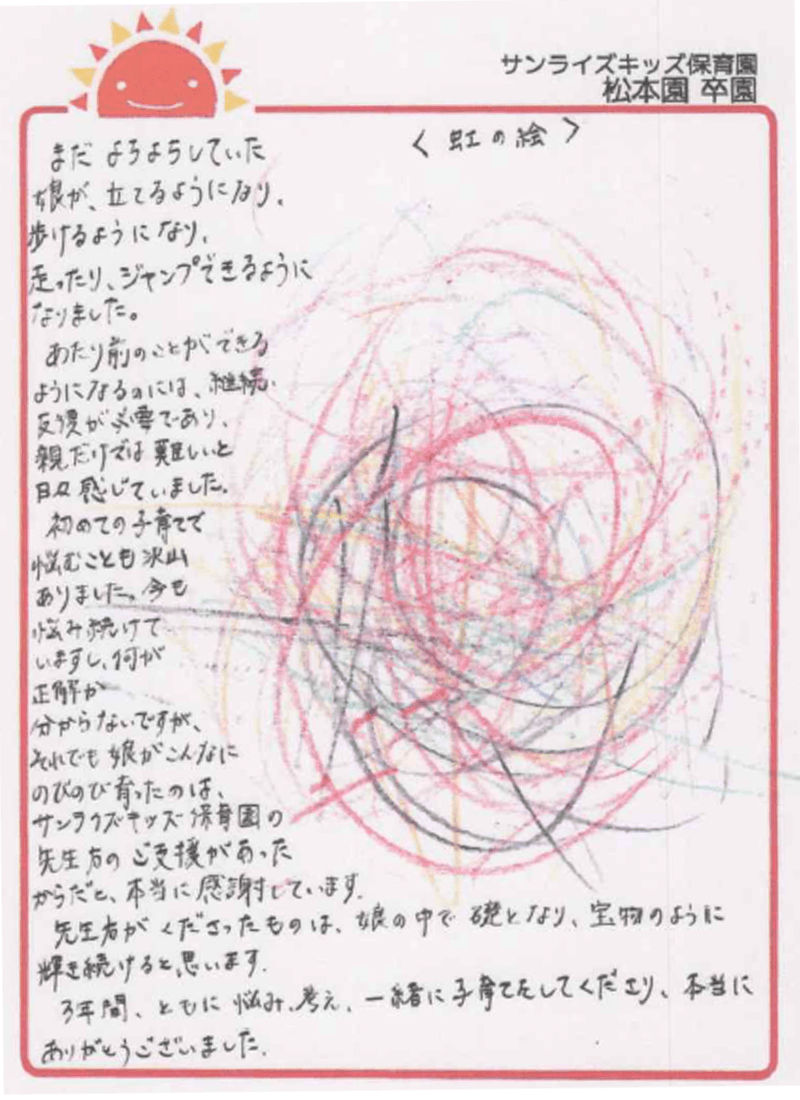 サンライズキッズ保育園
松本園 卒園
〈 虹の絵 〉
まだ よちよちしていた
娘が、立てるようになり、
歩けるようになり、
走ったり、ジャンプできるように
なりました。
あたり前のことができる
ようになるのには、継続、
反復が必要であり、
親だけでは難しいと
日々感じていました。
初めての子育てで
悩むことも沢山
ありました。今も
悩み続けて
いますし、何が
正解か
分からないですが、
それでも娘がこんなに
のびのび育ったのは、
サンライズキッズ保育園の
先生方のご支援があった
からだと、本当に感謝しています。
先生方がくださったものは、娘の中で礎となり、宝物のように
輝き続けると思います。
3年間、ともに悩み、考え、一緒に子育てをしてくださり、本当に
ありがとうございました。